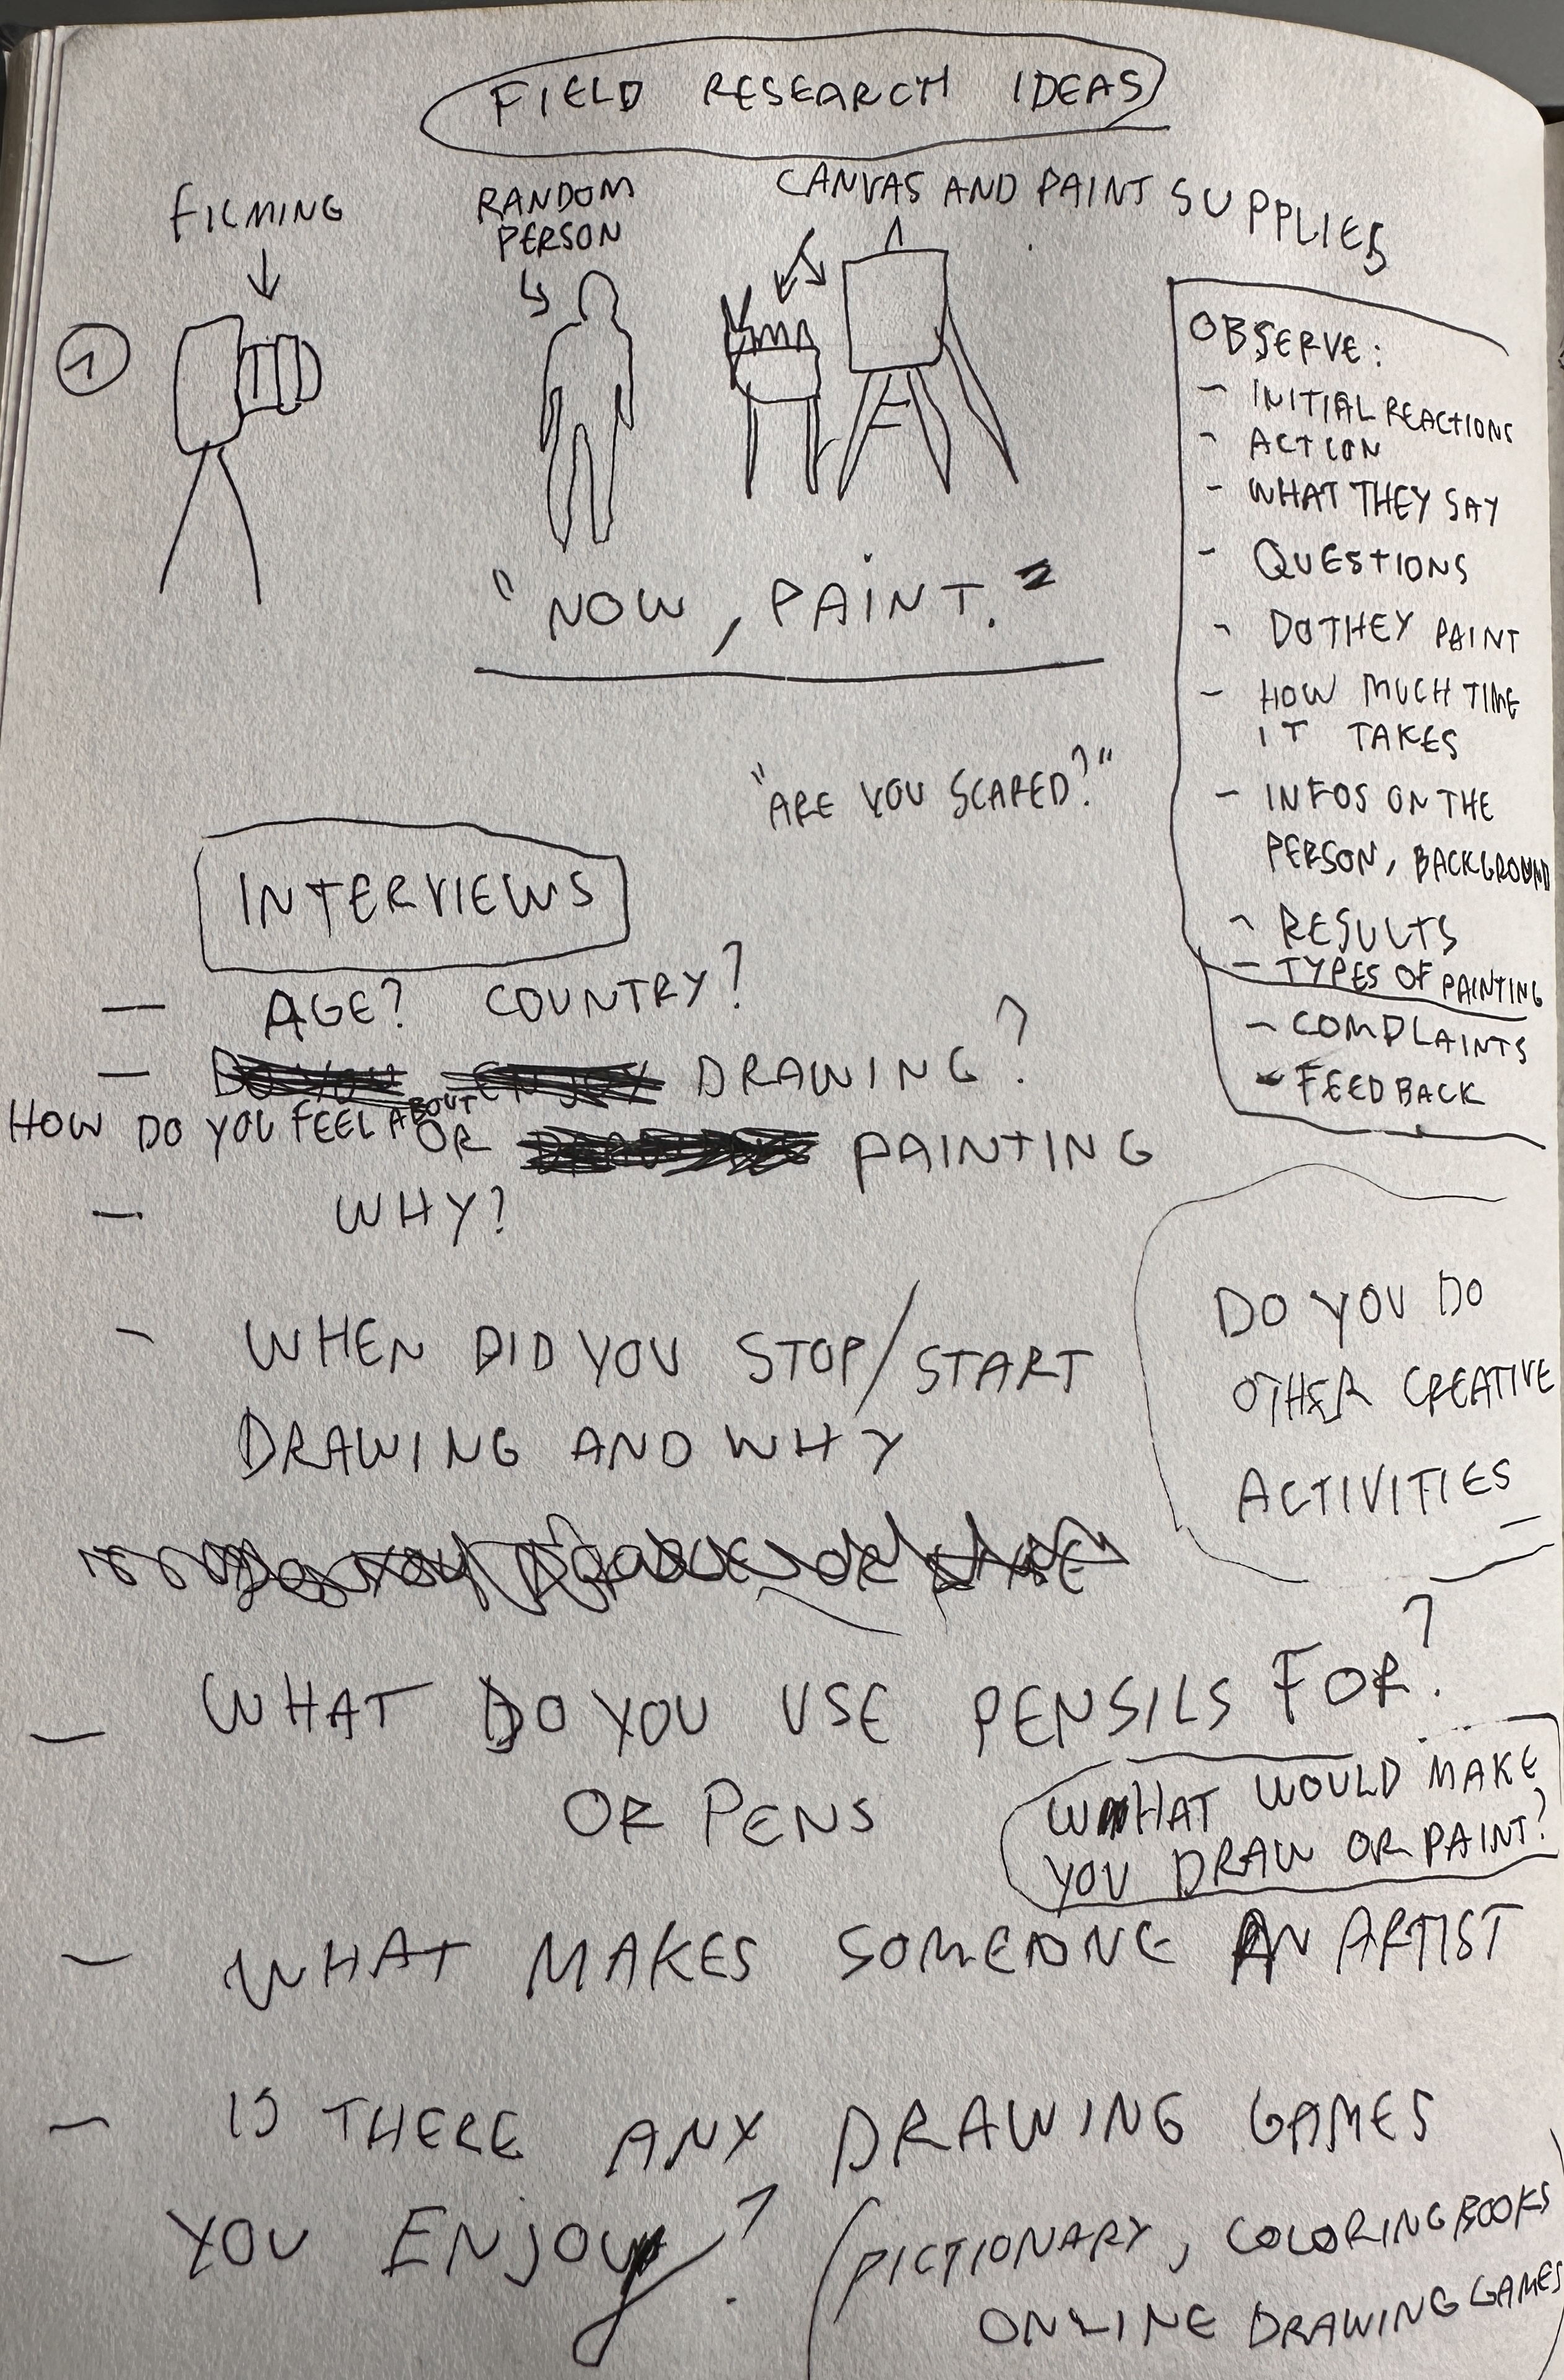 FIELD RESEARCH IDEAS
FILMING
RANDOM
PERSON
CANVAS AND PAINT SUPPLIES
1
"NOW, PAINT."
OBSERVE:
- INITIAL REACTIONS
- ACTION
- WHAT THEY SAY
- QUESTIONS
- DO THEY PAINT
- HOW MUCH TIME
IT TAKES
- INFOS ON THE
PERSON, BACKGROUND
- RESULTS
- TYPES OF PAINTING
- COMPLAINTS
- FEEDBACK
"ARE YOU SCARED?"
INTERVIEWS
- AGE? COUNTRY?
- DO YOU ENJOY DRAWING?
HOW DO YOU FEEL ABOUT
OR PAINTING
- WHY?
- WHEN DID YOU STOP/START
DRAWING AND WHY
DO YOU DO
OTHER CREATIVE
ACTIVITIES
- WHAT DO YOU USE PENSILS FOR?
OR PENS
WHAT WOULD MAKE
YOU DRAW OR PAINT?
- WHAT MAKES SOMEONE AN ARTIST
- IS THERE ANY DRAWING GAMES
YOU ENJOY?
(PICTIONARY, COLORING BOOKS
ONLINE DRAWING GAMES)